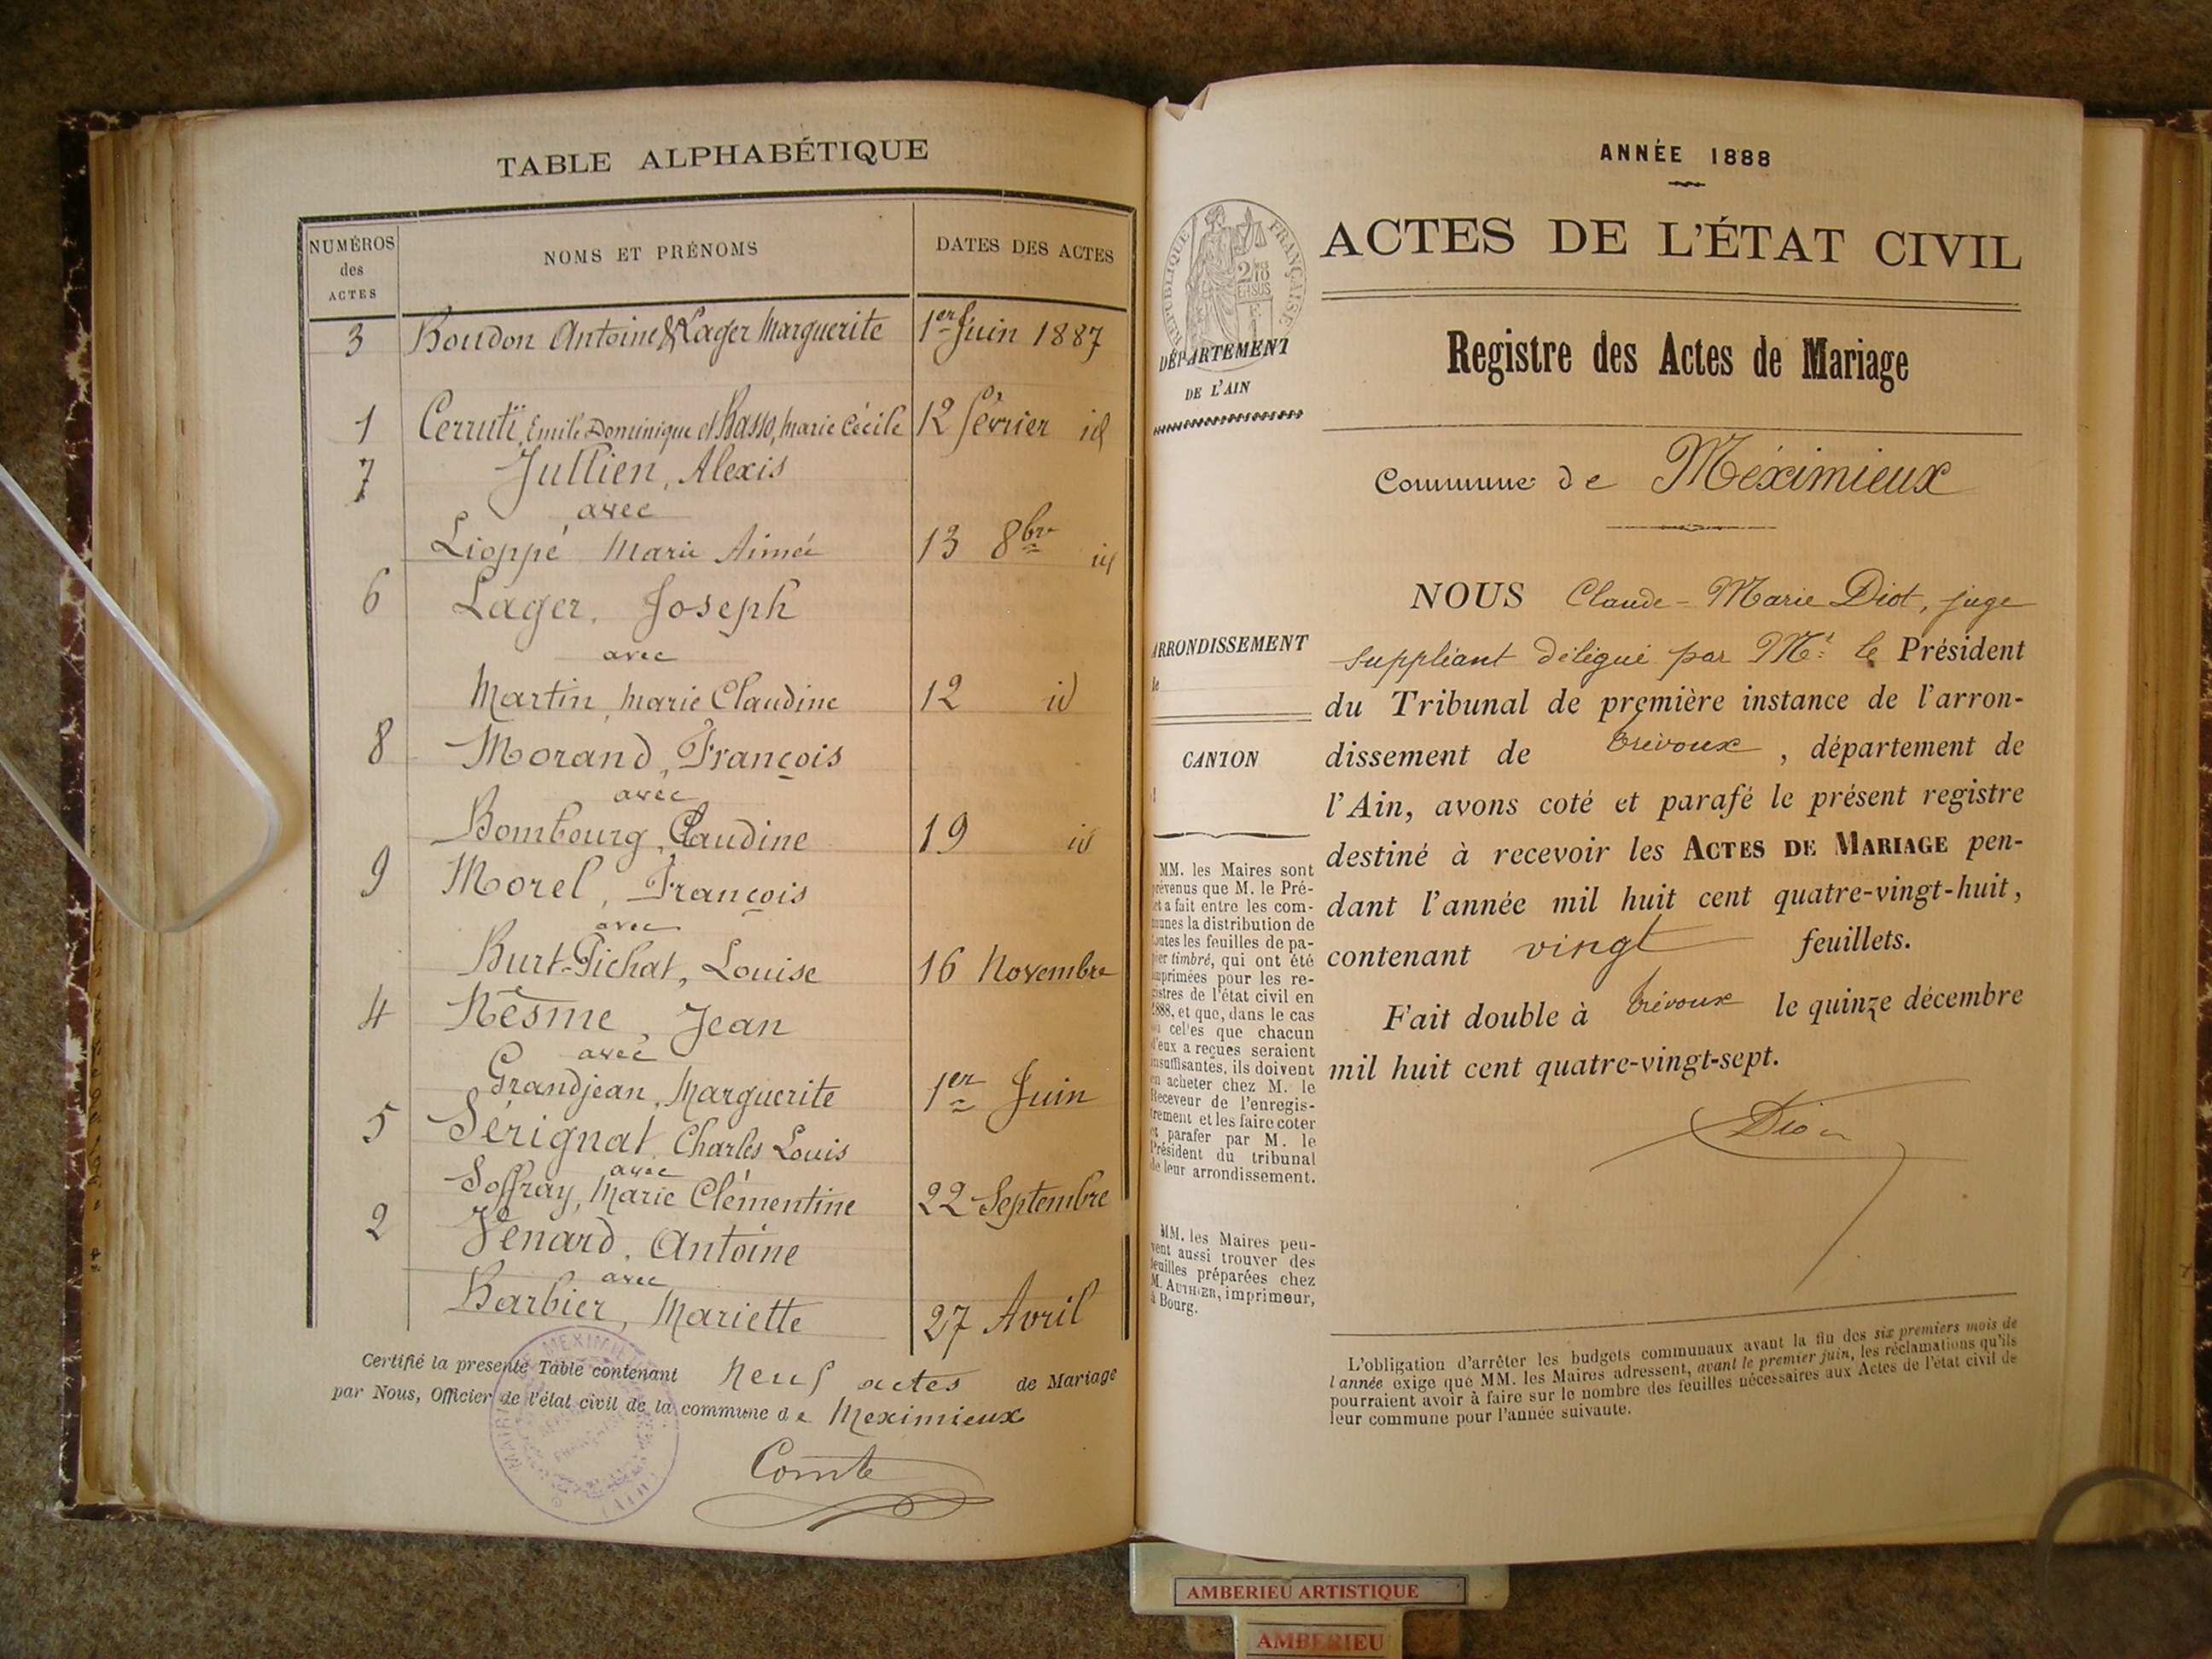 TABLE ALPHABÉTIQUE
NUMÉROS des ACTES
NOMS ET PRÉNOMS
DATES DES ACTES
3 Boudon Antoine & Lager Marguerite 1er Juin 1887
1 Cerruti, Emile Dominique et Basso, Marie Cécile 12 février id
7 Jullien, Alexis
avec
Lioppé Marie Aimée 13 8bre id
6 Lager, Joseph
avec
Martin, Marie Claudine 12 id
8 Morand, François
avec
Bombourg, Claudine 19 id
9 Morel, François
avec
Burt-Pichat, Louise 16 Novembre
4 Nesme, Jean
avec
Grandjean, Marguerite 1er Juin
5 Sérignat, Charles Louis
avec
Soffray, Marie Clémentine 22 Septembre
2 Venard, Antoine
avec
Barbier, Mariette 27 Avril
Certifié la presente Table contenant Neuf actes de Mariage
par Nous, Officier de l'état civil de la commune de Meximieux
Comte
ANNÉE 1888
RÉPUBLIQUE FRANÇAISE
ACTES DE L'ÉTAT CIVIL
DÉPARTEMENT
DE L'AIN
Registre des Actes de Mariage
Commune de Méximieux
ARRONDISSEMENT
CANTON
NOUS Claude-Marie Diot, juge
suppléant délégué par Mr le Président
du Tribunal de première instance de l'arron-
dissement de Trévoux, département de
l'Ain, avons coté et parafé le présent registre
destiné à recevoir les ACTES DE MARIAGE pen-
dant l'année mil huit cent quatre-vingt-huit,
contenant vingt feuillets.
Fait double à Trévoux le quinze décembre
mil huit cent quatre-vingt-sept.
Diot
MM. les Maires sont
prévenus que M. le Pré-
fet a fait entre les com-
munes la distribution de
toutes les feuilles de pa-
pier timbré, qui ont été
imprimées pour les re-
gistres de l'état civil en
1888, et que, dans le cas
où celles que chacun
d'eux a reçues seraient
insuffisantes, ils doivent
en acheter chez M. le
Receveur de l'enregis-
trement et les faire coter
et parafer par M. le
Président du tribunal
de leur arrondissement.
MM. les Maires peu-
vent aussi trouver des
feuilles préparées chez
M. AUTHIER, imprimeur,
à Bourg.
L'obligation d'arrêter les budgets communaux avant la fin des six premiers mois de
l'année exige que MM. les Maires adressent, avant le premier juin, les réclamations qu'ils
pourraient avoir à faire sur le nombre des feuilles nécessaires aux Actes de l'état civil de
leur commune pour l'année suivante.
AMBERIEU ARTISTIQUE
AMBERIEU